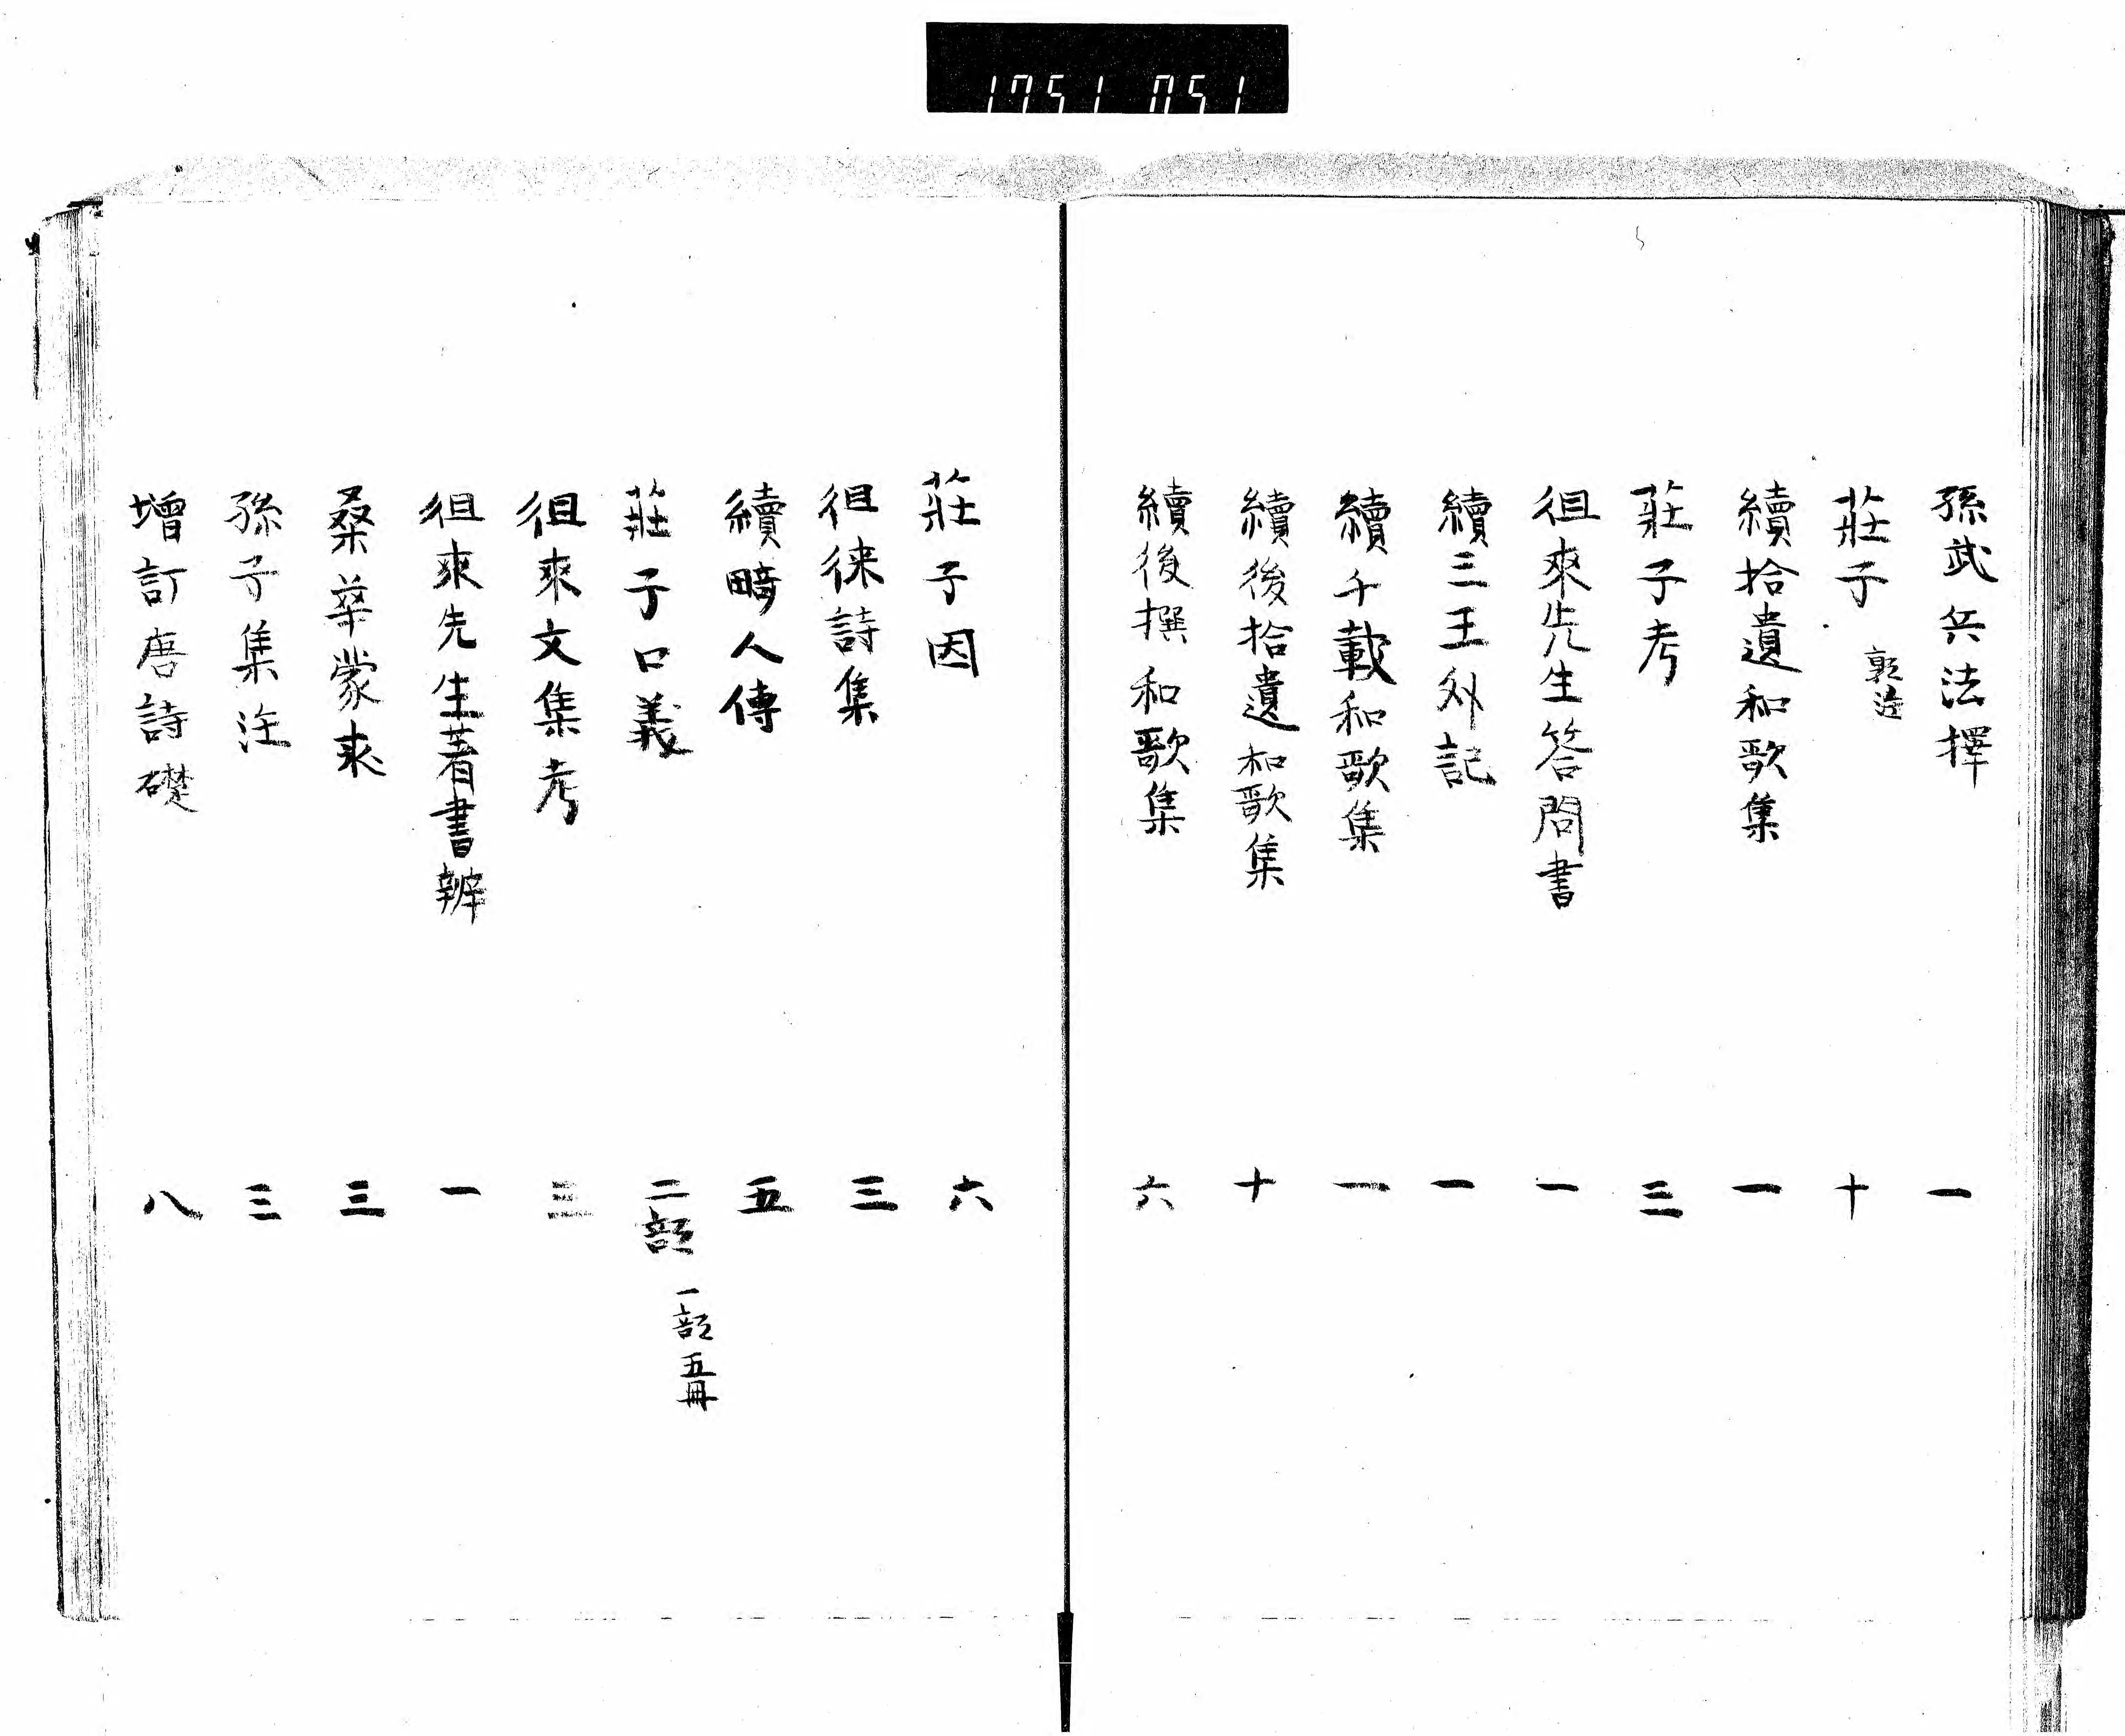 1751 051
孫武兵法擇 一
莊子 郭注 十
續拾遺和歌集 一
莊子考 三
徂來先生答問書 一
續三王外記 一
續千載和歌集 一
續後拾遺和歌集 十
續後撰和歌集 六
莊子因 六
徂徠詩集 三
續畸人傳 五
莊子口義 二部 一部五冊
徂來文集考 三
徂來先生著書辨 一
桑華蒙求 三
孫子集注 三
增訂唐詩礎 八